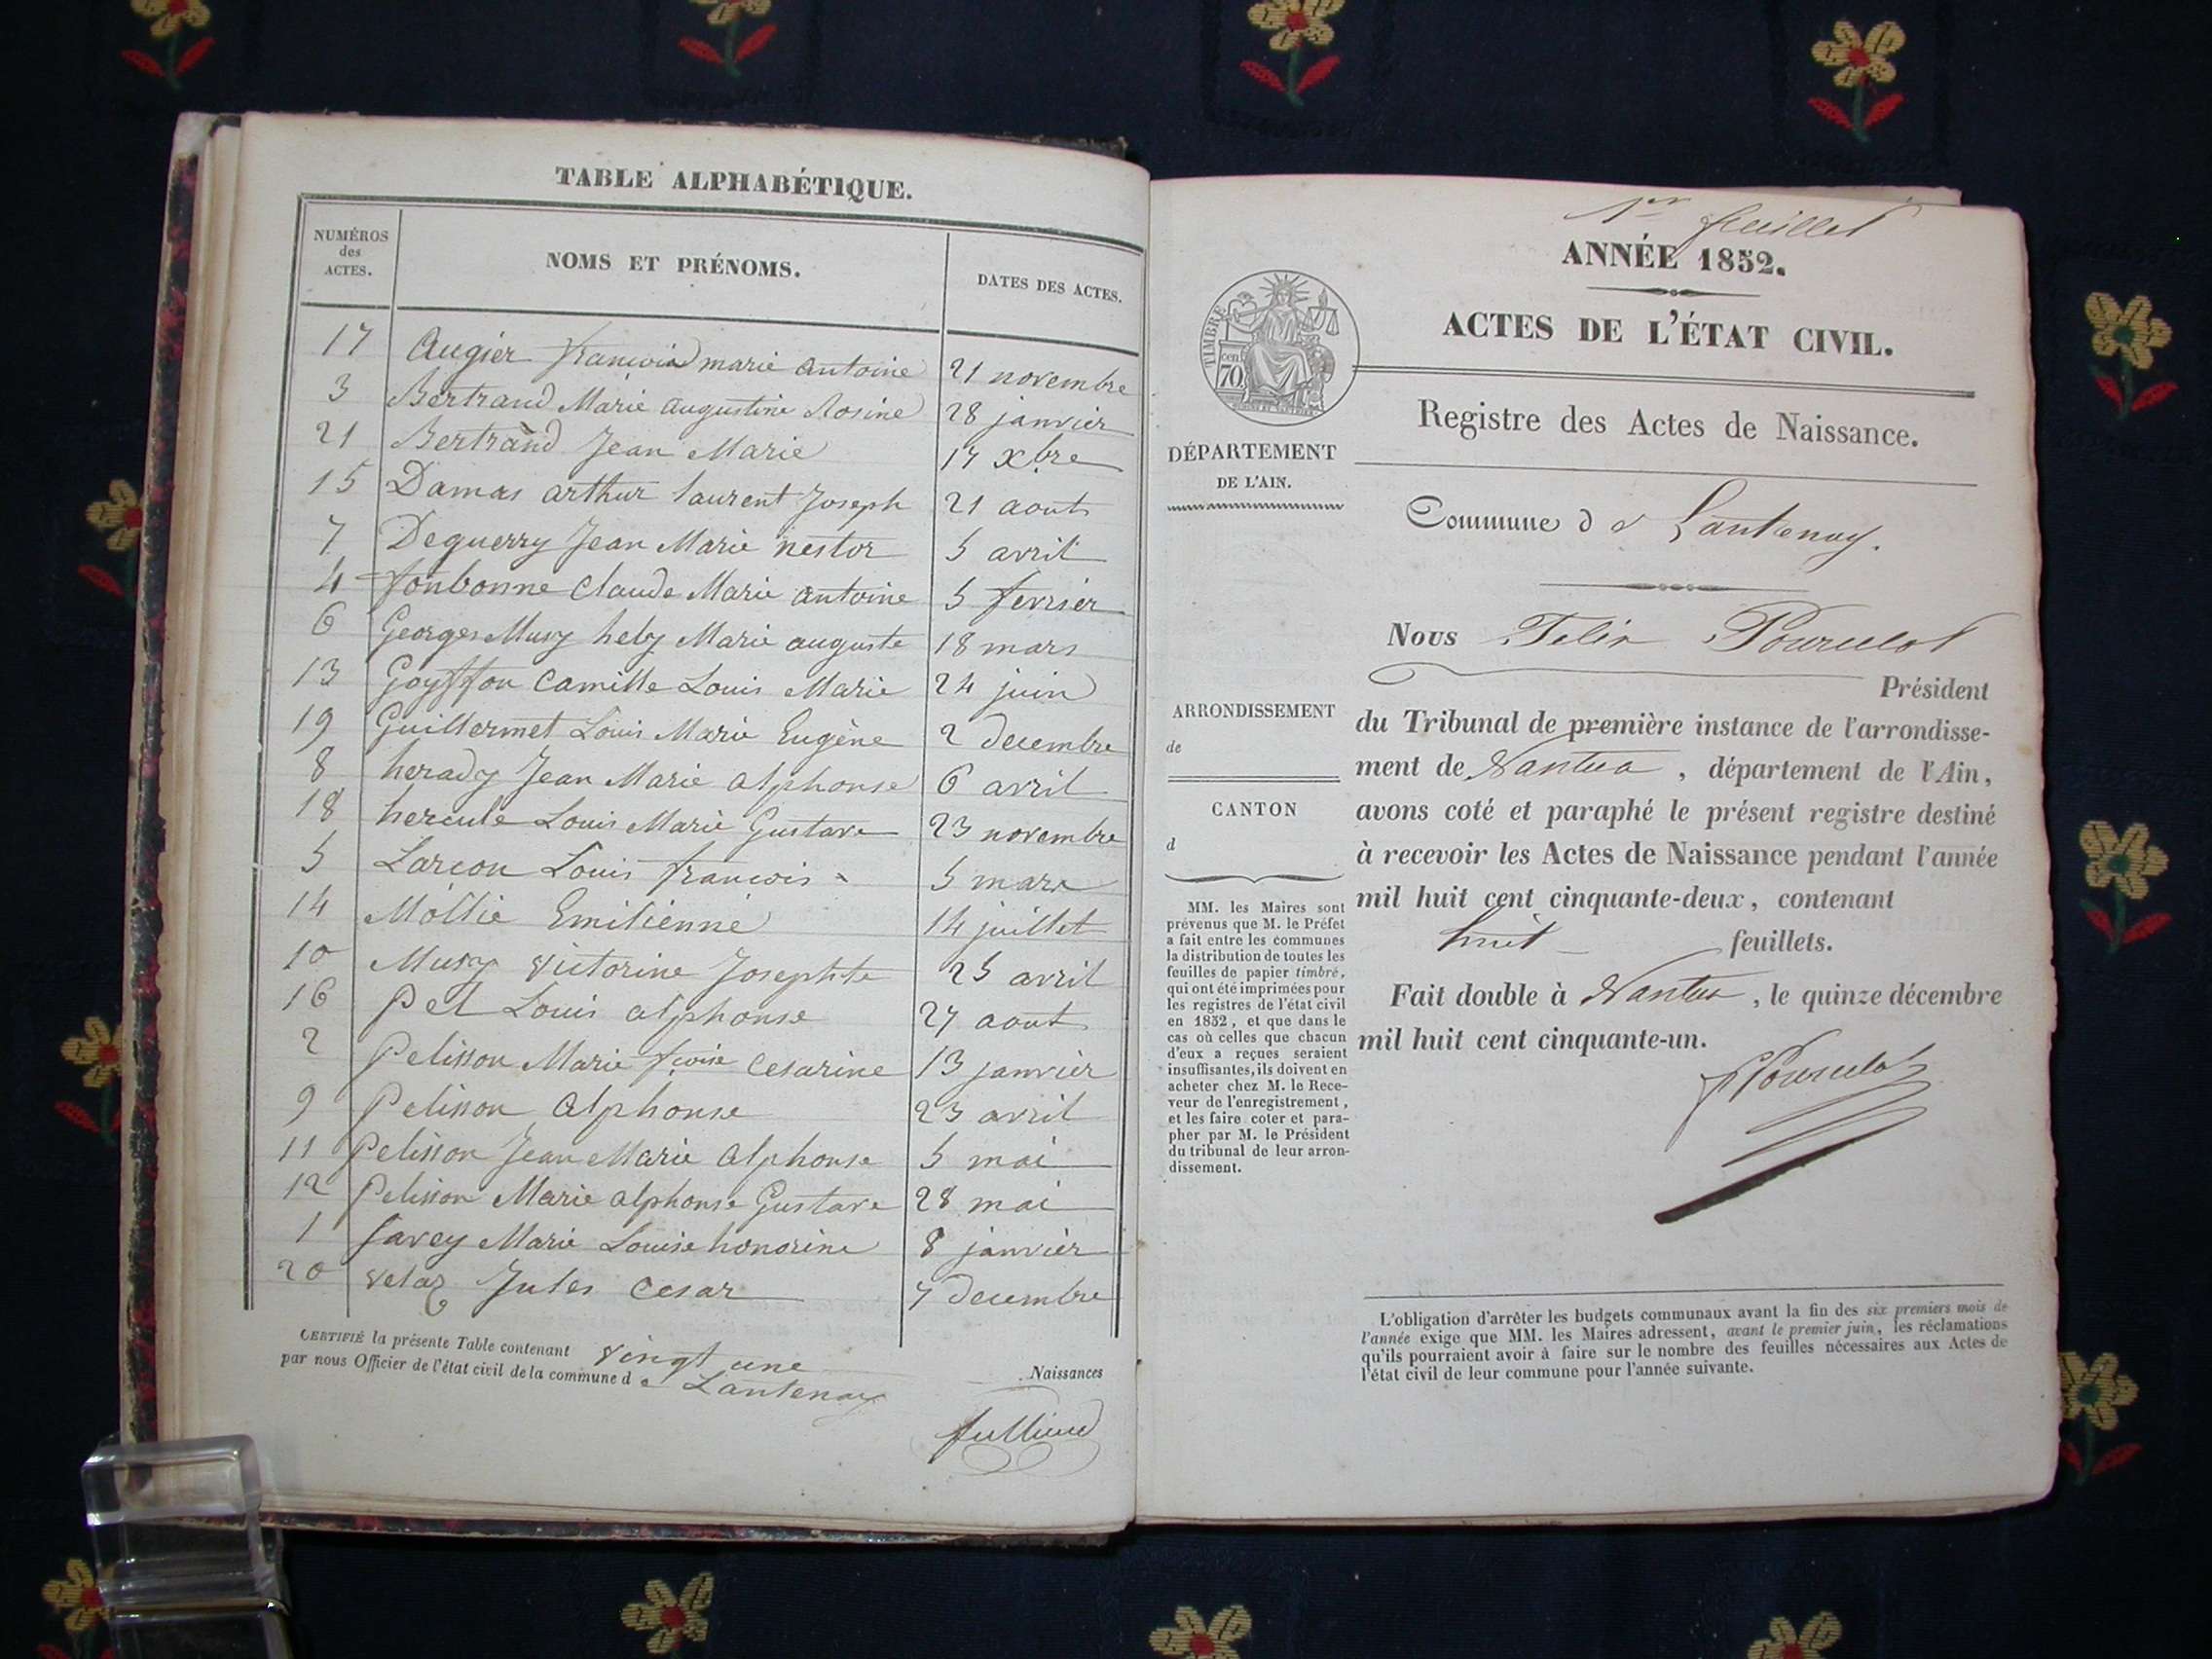 TABLE ALPHABÉTIQUE.
NUMÉROS
des
ACTES.
NOMS ET PRÉNOMS.
DATES DES ACTES.
17 Augier françois marie antoine 21 novembre
3 Bertrand Marie augustine Rosine 28 janvier
21 Bertrand Jean Marie 17 xbre
15 Damas arthur laurent Joseph 21 aout
7 Deguerry Jean Marie nestor 5 avril
4 fonbonne Claude Marie antoine 5 fevrier
6 Georges Musy hely Marie auguste 18 mars
13 Goyffon Camille Louis Marie 24 juin
19 Guillermet Louis Marie Eugène 2 decembre
8 herady Jean Marie alphonse 6 avril
18 hercule Louis Marie Gustave 23 novembre
5 Larcon Louis francois 5 mars
14 Mollie Emilienne 14 juillet
10 Musy victorine Josephte 25 avril
16 Pel Louis alphonse 27 aout
2 Pelisson Marie fçoise Cesarine 13 janvier
9 Pelisson Alphonse 23 avril
11 Pelisson Jean Marie Alphonse 5 mai
12 Pelisson Marie alphonse Gustave 28 mai
1 Savey Marie Louise honorine 8 janvier
20 velaz Jules Cesar 7 decembre
CERTIFIÉ la présente Table contenant vingt une Naissances
par nous Officier de l'état civil de la commune d e Lantenay
1er feuillet
ANNÉE 1852.
ACTES DE L'ÉTAT CIVIL.
TIMBRE
cen
70
Registre des Actes de Naissance.
DÉPARTEMENT
DE L'AIN.
Commune d e Lantenay.
Nous Felix Pourcelot
Président
ARRONDISSEMENT
de
CANTON
d
du Tribunal de première instance de l'arrondisse-
ment de Nantua, département de l'Ain,
avons coté et paraphé le présent registre destiné
à recevoir les Actes de Naissance pendant l'année
mil huit cent cinquante-deux, contenant
huit feuillets.
Fait double à Nantua, le quinze décembre
mil huit cent cinquante-un.
Pourcelot
MM. les Maires sont
prévenus que M. le Préfet
a fait entre les communes
la distribution de toutes les
feuilles de papier timbré,
qui ont été imprimées pour
les registres de l'état civil
en 1852, et que dans le
cas où celles que chacun
d'eux a reçues seraient
insuffisantes, ils doivent en
acheter chez M. le Rece-
veur de l'enregistrement,
et les faire coter et para-
pher par M. le Président
du tribunal de leur arron-
dissement.
L'obligation d'arrêter les budgets communaux avant la fin des six premiers mois de
l'année exige que MM. les Maires adressent, avant le premier juin, les réclamations
qu'ils pourraient avoir à faire sur le nombre des feuilles nécessaires aux Actes de
l'état civil de leur commune pour l'année suivante.